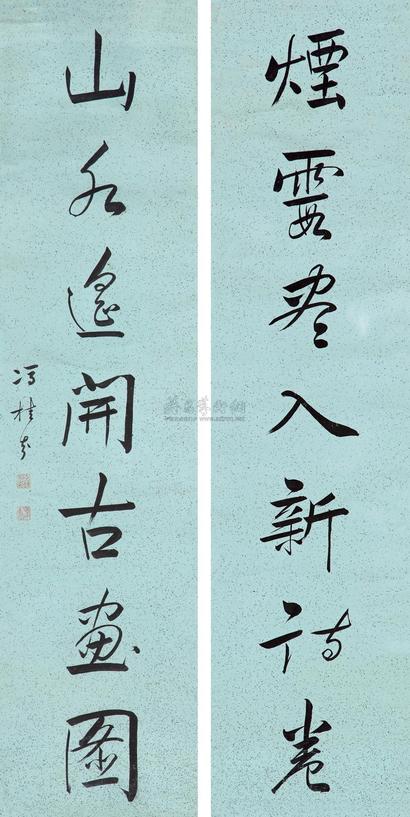 煙霞尽入新詩卷
山水遙開古畫圖
馮桂芬